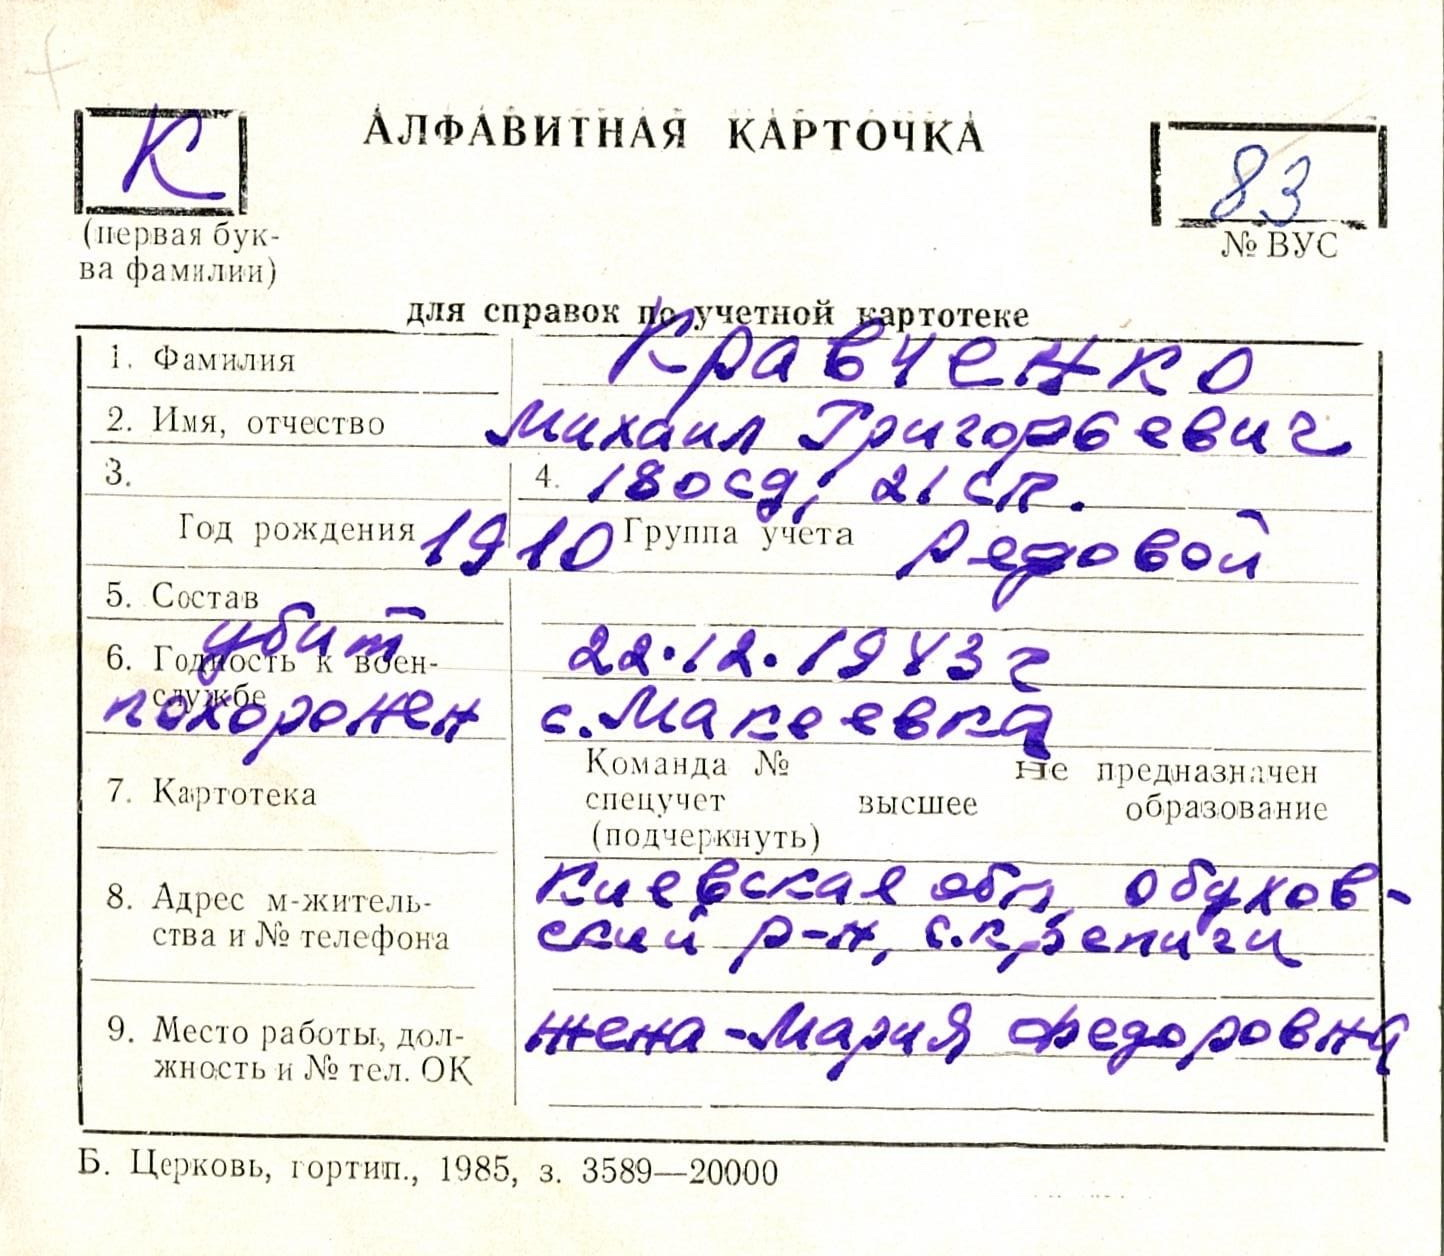 К
АЛФАВИТНАЯ КАРТОЧКА
83
(первая бук-
ва фамилии)
№ ВУС
для справок по учетной картотеке
1. Фамилия Кравченко
2. Имя, отчество Михаил Григорьевич
3. 4. 180 сд; 21 сп.
Год рождения 1910 Группа учета Редовой
5. Состав
убит 22.12.1943 г
6. Годность к воен-
службе
похоронен с. Макеевка
Команда № Не предназначен
7. Картотека спецучет высшее образование
(подчеркнуть)
8. Адрес м-житель- Киевская обл, Обухов-
ства и № телефона ский р-н, с.
9. Место работы, дол- жена - Мария Федоровна
жность и № тел. ОК
Б. Церковь, гортип., 1985, з. 3589—20000